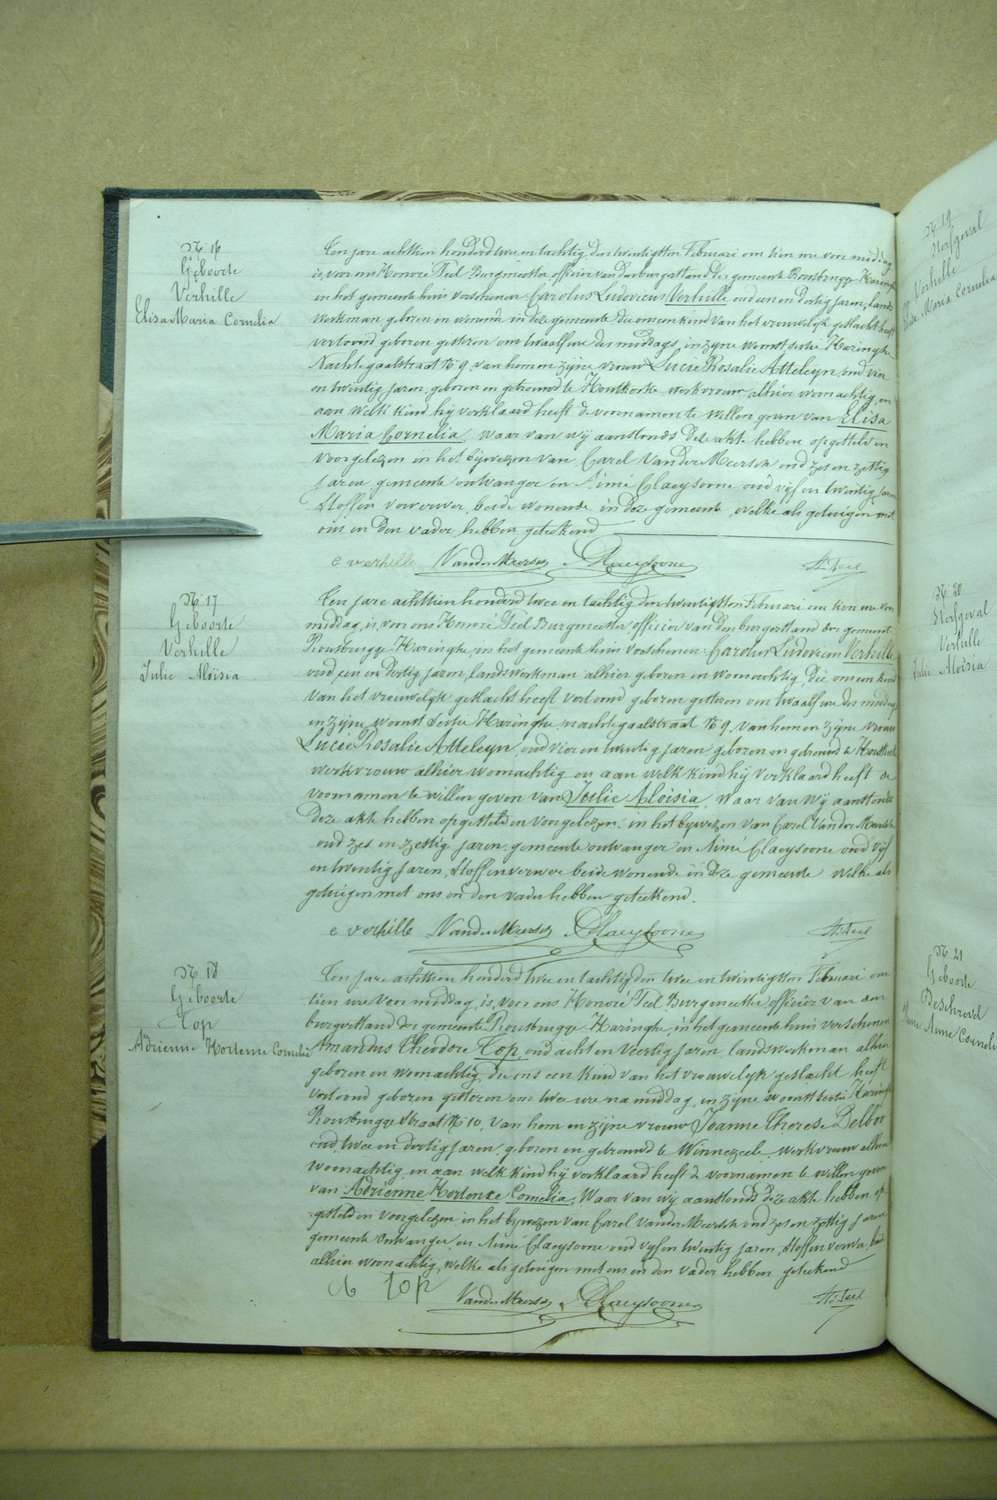 N. 16
Geboorte
Verhille
Elisa Maria Cornelia
Ten jare achttien honderd twee en tachtig den twintigsten Februari om tien ure voor middag
is, voor ons Honoré Teel Burgmeester, officier van den burgerstand der gemeente Rousbrugge Haringhe
in het gemeente huis verschenen Carolus Ludovicus Verhille oud een en dertig jaren, lands
werkman geboren en wonend in deze gemeente die ons een kind van het vrouwelijk geslacht heeft
vertoond geboren gisteren om twaalf ure des middags, in zijne woonst sectie Haringhe
Nachtegaalstraat N. 9, van hem en zijne vrouw Lucie Rosalie Atteleyn oud vier
en twintig jaren, geboren en getrouwd te Houtkerke, werkvrouw alhier woonachtig, en
aan welk kind hij verklaard heeft de voornamen te willen geven van Elisa
Maria Cornelia, waar van wij aanstonds deze akte hebben opgesteld en
voorgelezen in het bijwezen van Carel Van der Meersch oud zes en zestig
jaren gemeente ontvanger en Aimé Claeysoone oud vijf en twintig jaren
Stoffen verwer, beide wonende in deze gemeente, welke als getuigen met
ons en den vader hebben geteekend
c verhille VanderMeersch A Claeysoone H. Teel
N. 17
Geboorte
Verhille
Julie Aloïsia
Ten jare achttien honderd twee en tachtig den twintigsten Februari om tien ure voor
middag, is, voor ons Honoré Teel Burgmeester, officier van den burgerstand der gemeente
Rousbrugge Haringhe, in het gemeente huis verschenen Carolus Ludovicus Verhille
oud een en dertig jaren, landswerkman alhier geboren en woonachtig, die ons een kind
van het vrouwelijk geslacht heeft vertoond geboren gisteren om twaalf ure des middags
in zijne woonst sectie Haringhe nachtegaalstraat N. 9 van hem en zijne vrouw
Lucie Rosalie Atteleyn oud vier en twintig jaren geboren en getrouwd te Houtkerke
werkvrouw alhier woonachtig en aan welk kind hij verklaard heeft de
voornamen te willen geven van Julie Aloïsia, waar van wij aanstonds
deze akte hebben opgesteld en voorgelezen in het bijwezen van Carel Van der Meersch
oud zes en zestig jaren gemeente ontvanger en Aimé Claeysoone oud vijf
en twintig jaren, Stoffenverwer beide wonende in deze gemeente welke als
getuigen met ons en den vader hebben geteekend.
c verhille VanderMeersch A Claeysoone H. Teel
N. 18
Geboorte
Top
Adrienne Hortense Cornelie
Ten jare achttien honderd twee en tachtig den twee en twintigsten Februari om
tien ure voor middag, is, voor ons Honoré Teel Burgmeester officier van den
burgerstand der gemeente Rousbrugge Haringhe, in het gemeente huis verschenen
Amandus Theodore Top, oud acht en veertig jaren landswerkman alhier
geboren en woonachtig, die ons een kind van het vrouwelijk geslacht heeft
vertoond geboren gisteren om twee ure namiddag, in zijne woonst sectie Haringhe
Rousbrugge straat N. 10, van hem en zijne vrouw Jeanne Therese Delbec
oud twee en dertig jaren, geboren en getrouwd te Winnezeele werkvrouw alhier
woonachtig en aan welk kind hij verklaard heeft de voornamen te willen geven
van Adrienne Hortense Cornelia, waar van wij aanstonds deze akte hebben op-
gesteld en voorgelezen in het bijwezen van Carel Van der Meersch oud zes en zestig jaren
gemeente ontvanger en Aimé Claeysoone oud vijf en twintig jaren, Stoffen verwer beide
alhier woonachtig, welke als getuigen met ons en den vader hebben geteekend
A top VanderMeersch A Claeysoone H. Teel
N. 19
Sterfgeval
Verhille
Elisa Maria Cornelia
N. 20
Sterfgeval
Verhille
Julie Aloïsia
N. 21
Geboorte
Anne Cornelie